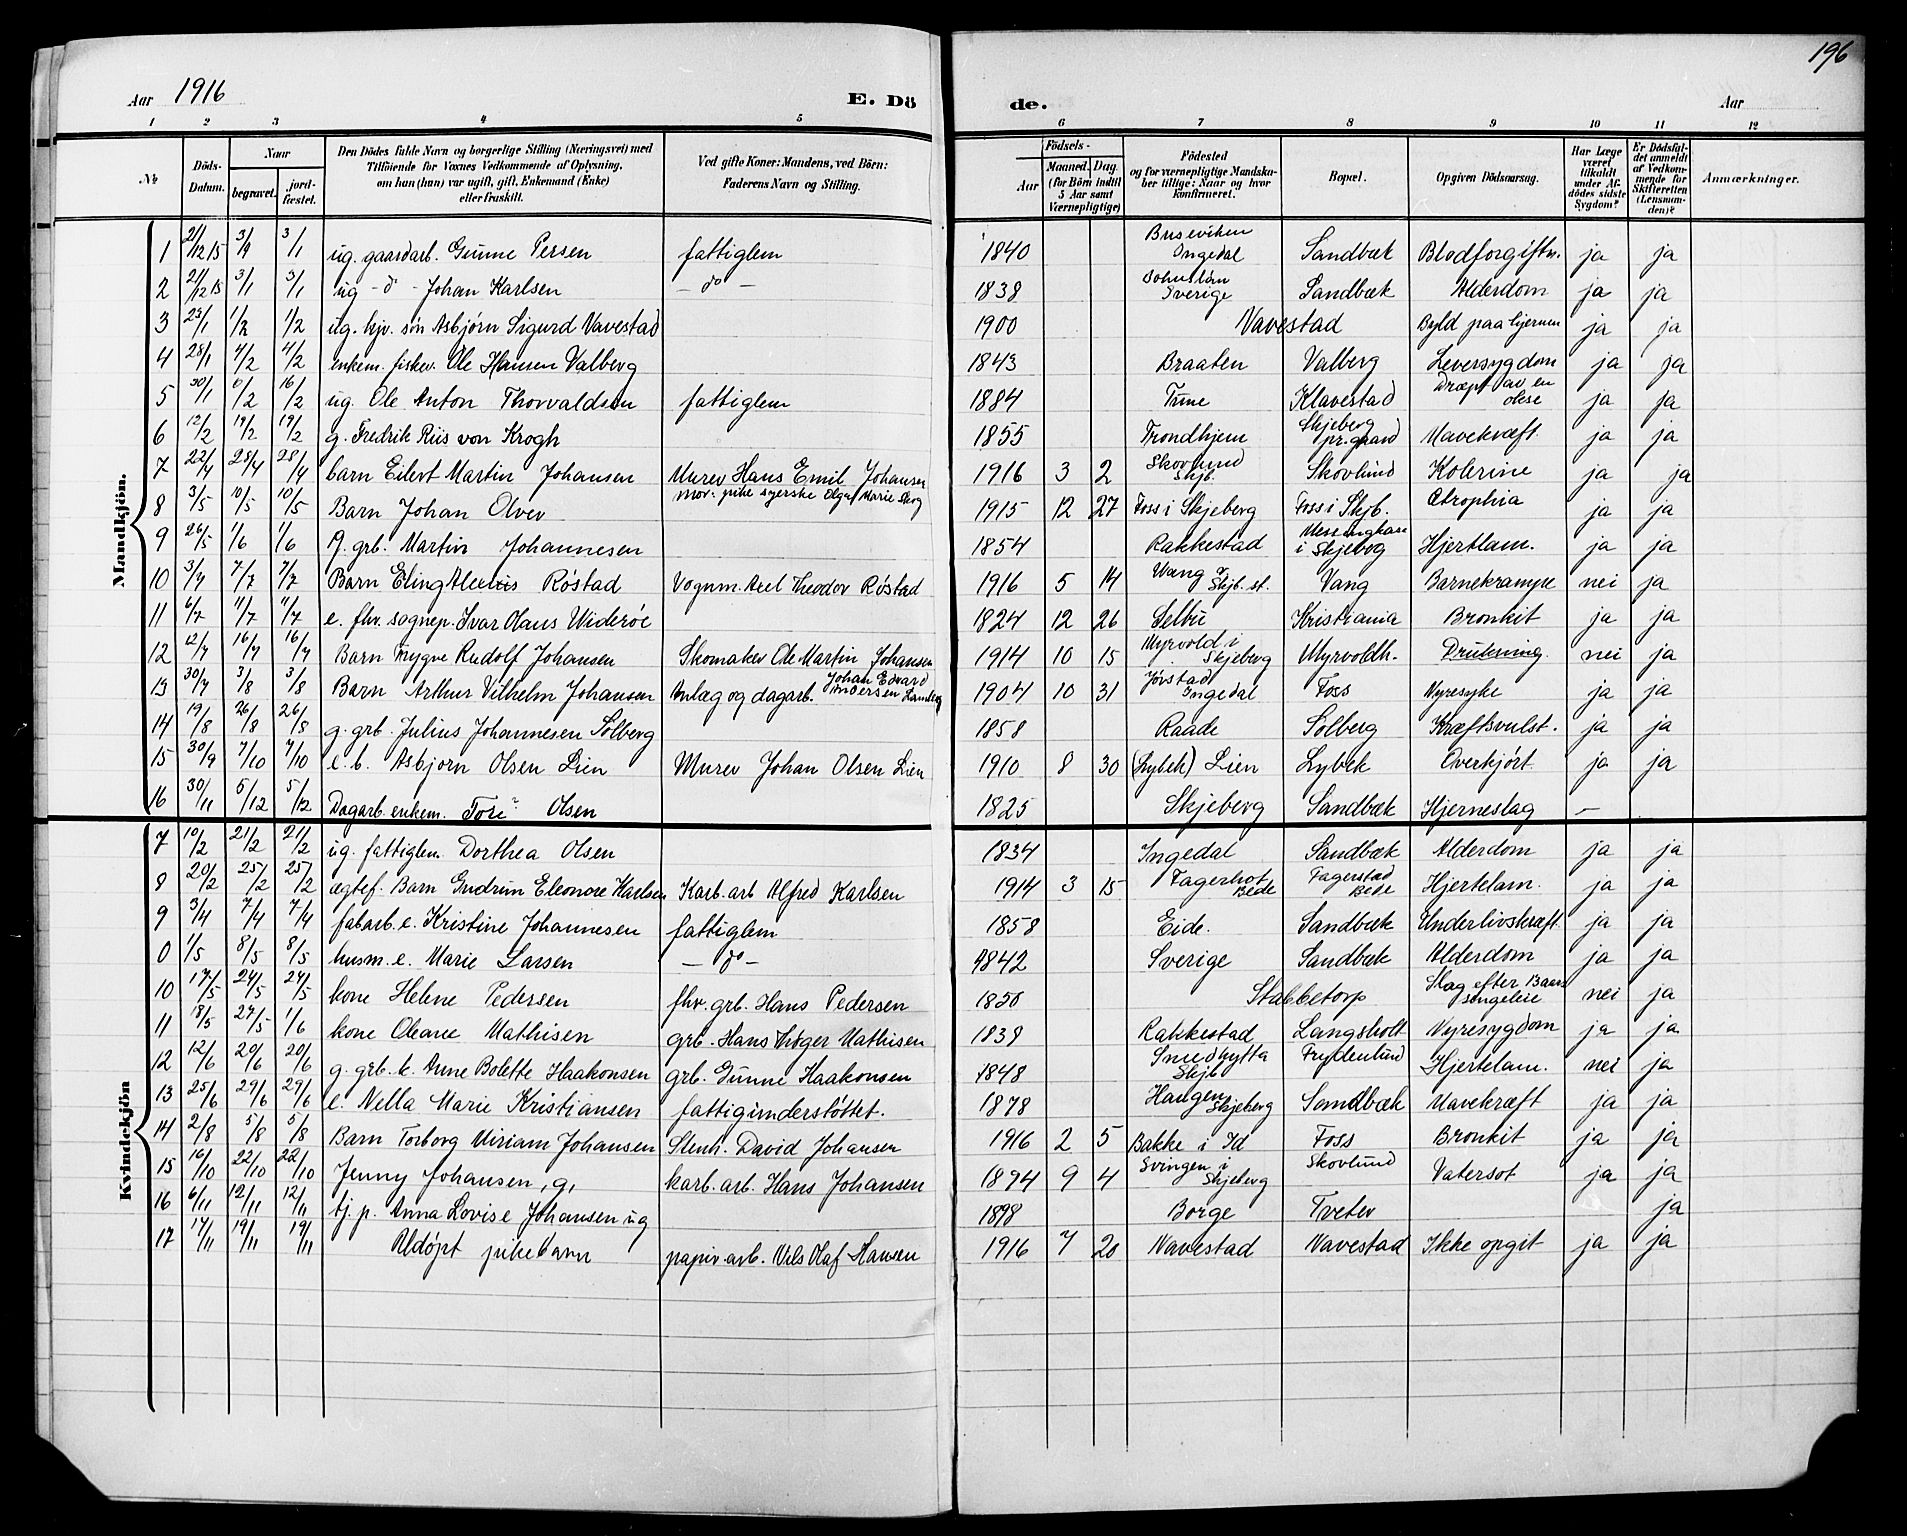 196
Aar 1916
E. Dö de.
Aar
1 2 3 4 5 6 7 8 9 10 11 12
№
Döds-Datum.
Naar begravet. jord-fæstet.
Den Dödes fulde Navn og borgerlige Stilling (Næringsvei) med Tilföiende for Voxnes Vedkommende af Oplysning, om han (hun) var ugift, gift, Enkemand (Enke) eller fraskilt.
Ved gifte Koner: Mandens, ved Börn: Faderens Navn og Stilling.
Födsels-
Aar Maaned. Dag. (for Börn indtil 5 Aar samt Værnepligtige)
Födested og for værnepligtige Mandska-ber tillige: Naar og hvor konfirmeret.
Bopæl.
Opgiven Dödsaarsag.
Har Læge været tilkaldt under Af-dödes sidste Sygdom?
Er Dödsfal-det anmeldt af Vedkom-mende for Skifteretten (Lensman-den)?
Anmærkninger.
Mandkjön.
1 21/12 15 3/1 3/1 ug. gaardarb. Gunne Persen fattiglem 1840 Buseviken Ingedal Sandbæk Blodforgiftn. ja ja
2 21/12 15 3/1 3/1 ug - do - Johan Karlsen - do - 1838 Bohuslän Sverige Sandbæk Alderdom ja ja
3 23/1 1/2 1/2 ug. hjv. søn Asbjørn Sigurd Navestad 1900 Navestad Byld paa hjernen ja ja
4 28/1 4/2 4/2 enkem. fisker. Ole Hansen Valberg 1843 Braaten Valberg Leversygdom ja ja
5 30/1 /2 16/2 ug. Ole Anton Thorvaldsen fattiglem 1884 Tune Klavestad Dræpt av en okse ja ja
6 12/2 19/2 19/2 g. Fredrik Riis von Krogh 1855 Trondhjem Skjeberg pr.gaard Mavekræft. ja ja
7 22/4 28/4 28/4 barn Eilert Martin Johansen Murer Hans Emil Johansen 1916 3 2 Skovlund Skjb. Skovlund Kolerine ja ja
8 3/5 10/5 10/5 Barn Johan Olver mor: pike syerske Olga Marie 1915 12 27 Foss i Skjeberg Foss i Skjb. Atrophia ja ja
9 26/5 1/6 1/6 g. grb. Martin Johannesen 1854 Rakkestad i Skjebog Hjertlam. ja ja
10 3/7 7/7 7/7 Barn Eling Alexis Røstad Vognm. Axel Theodor Røstad 1916 5 14 Wang v Skjb. st. Vang Barnekrampe nei ja
11 6/7 11/7 11/7 e. fhv. sognep. Ivar Olaus Widerøe 1824 12 26 Selbu Kristiania Bronkit ja ja
12 12/7 16/7 16/7 Barn Trygve Rudolf Johansen Skomaker Ole Martin Johansen 1914 10 15 Myrvold i Skjeberg Myrvoldh. Drukning. nei ja
13 30/7 3/8 3/8 Barn Arthur Vilhelm Johansen Anlæg og dagarb. Johan Edvard Andersen 1904 10 31 Jörstad Ingedal Foss Nyresyke ja ja
14 19/8 26/8 26/8 g. grb. Julius Johannesen Solberg 1858 Raade Solberg Kræftsvulst. ja ja
15 30/9 7/10 7/10 e. b. Asbjørn Olsen Lien Murer Johan Olsen Lien 1910 8 30 (Lybek) Lien Lybek Overkjørt. ja ja
16 30/11 5/12 5/12 Dagarb. enkem. Tore Olsen 1825 Skjeberg Sandbæk Hjerneslag -
Kvindekjön
7 10/2 21/2 21/2 ug. fattiglem Dorthea Olsen 1834 Ingedal Sandbæk Alderdom ja ja
8 20/2 25/2 25/2 ægtef. Barn Gudrun Eleonore Karlsen Karb. arb Alfred Karlsen 1914 3 15 Fagerhot Bede Fagerstad Bede Hjertelam. ja ja
9 3/4 7/4 7/4 fabarb. e. Kristine Johannesen fattiglem 1858 Eide. Sandbæk Underlivskræft ja ja
0 1/5 8/5 8/5 husm. e. Marie Larsen - do - 1842 Sverige Sandbæk Alderdom ja ja
10 17/5 24/5 24/5 kone Helene Pedersen fhv. grb. Hans Pedersen 1850 Stabbetorp Slag efter nei ja
11 18/5 27/5 1/6 kone Oleane Mathisen grb. Hans Høger Mathisen 1838 Rakkestad Langsholt Nyresygdom ja ja
12 12/6 20/6 20/6 g. grb. k. Anne Bolette Haakonsen grb. Gunne Haakonsen 1848 Smedhytta Skjb Frydenlund Hjertelam. nei ja
13 25/6 29/6 29/6 e. Nella Marie Kristiansen fattigunderstöttet. 1878 Haugen Skjeberg Sandbæk Mavekræft ja ja
14 2/8 5/8 5/8 Barn Torborg Miriam Johansen Stenh. David Johansen 1916 2 5 Bakke i Id Foss Bronkit ja ja
15 16/10 22/10 22/10 Jenny Johansen, g, karb. arb. Hans Johansen 1894 9 4 Svingen i Skjeberg Skovlund Vatersot ja ja
16 6/11 12/11 12/11 tj. p. Anna Lovise Johansen ug 1898 Borge Tveter ja
17 17/11 19/11 19/11 Udøpt pikebarn papir. arb. Nils Olaf Hansen 1916 7 20 Navestad Navestad Ikke opgit ja ja